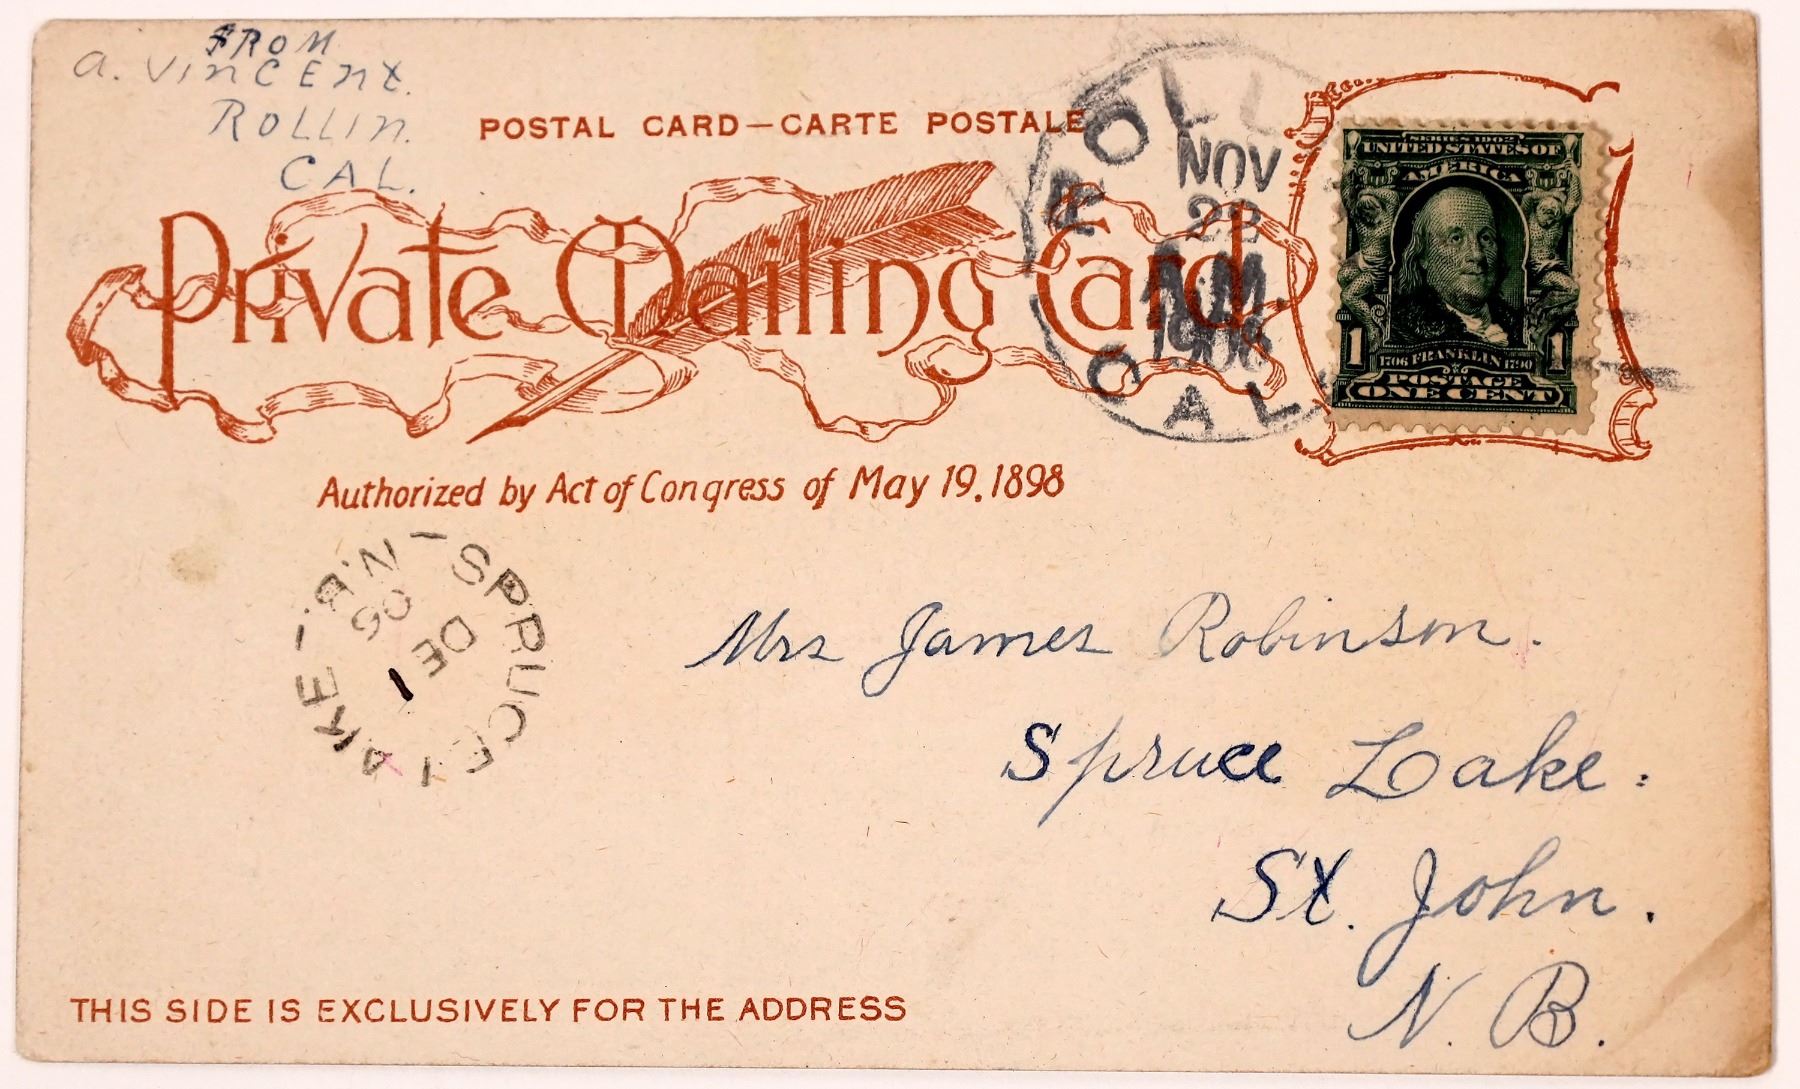 FROM
A. VINCENT.
ROLLIN.
CAL.
POSTAL CARD—CARTE POSTALE
Private Mailing Card
Authorized by Act of Congress of May 19, 1898
ROLLI
NOV
22
A.M.
1906
CAL
SERIES 1902
UNITED STATES OF
AMERICA
1 1706 FRANKLIN 1790 1
POSTAGE
ONE CENT
SPRUCE LAKE
N.B.
DE 1
06
Mrs James Robinson.
Spruce Lake:
St. John.
N. B.
THIS SIDE IS EXCLUSIVELY FOR THE ADDRESS